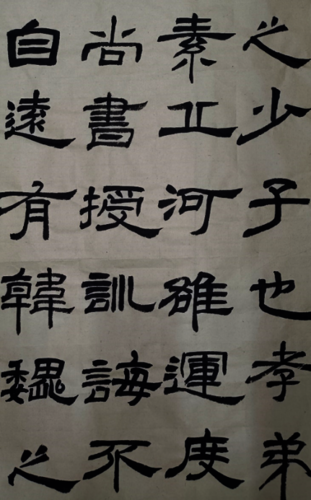 之少子也孝弟
素丘河雒運度
尚書授訓誨不
自遠有韓魏之